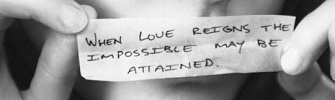 WHEN LOVE REIGNS THE
IMPOSSIBLE MAY BE
ATTAINED.